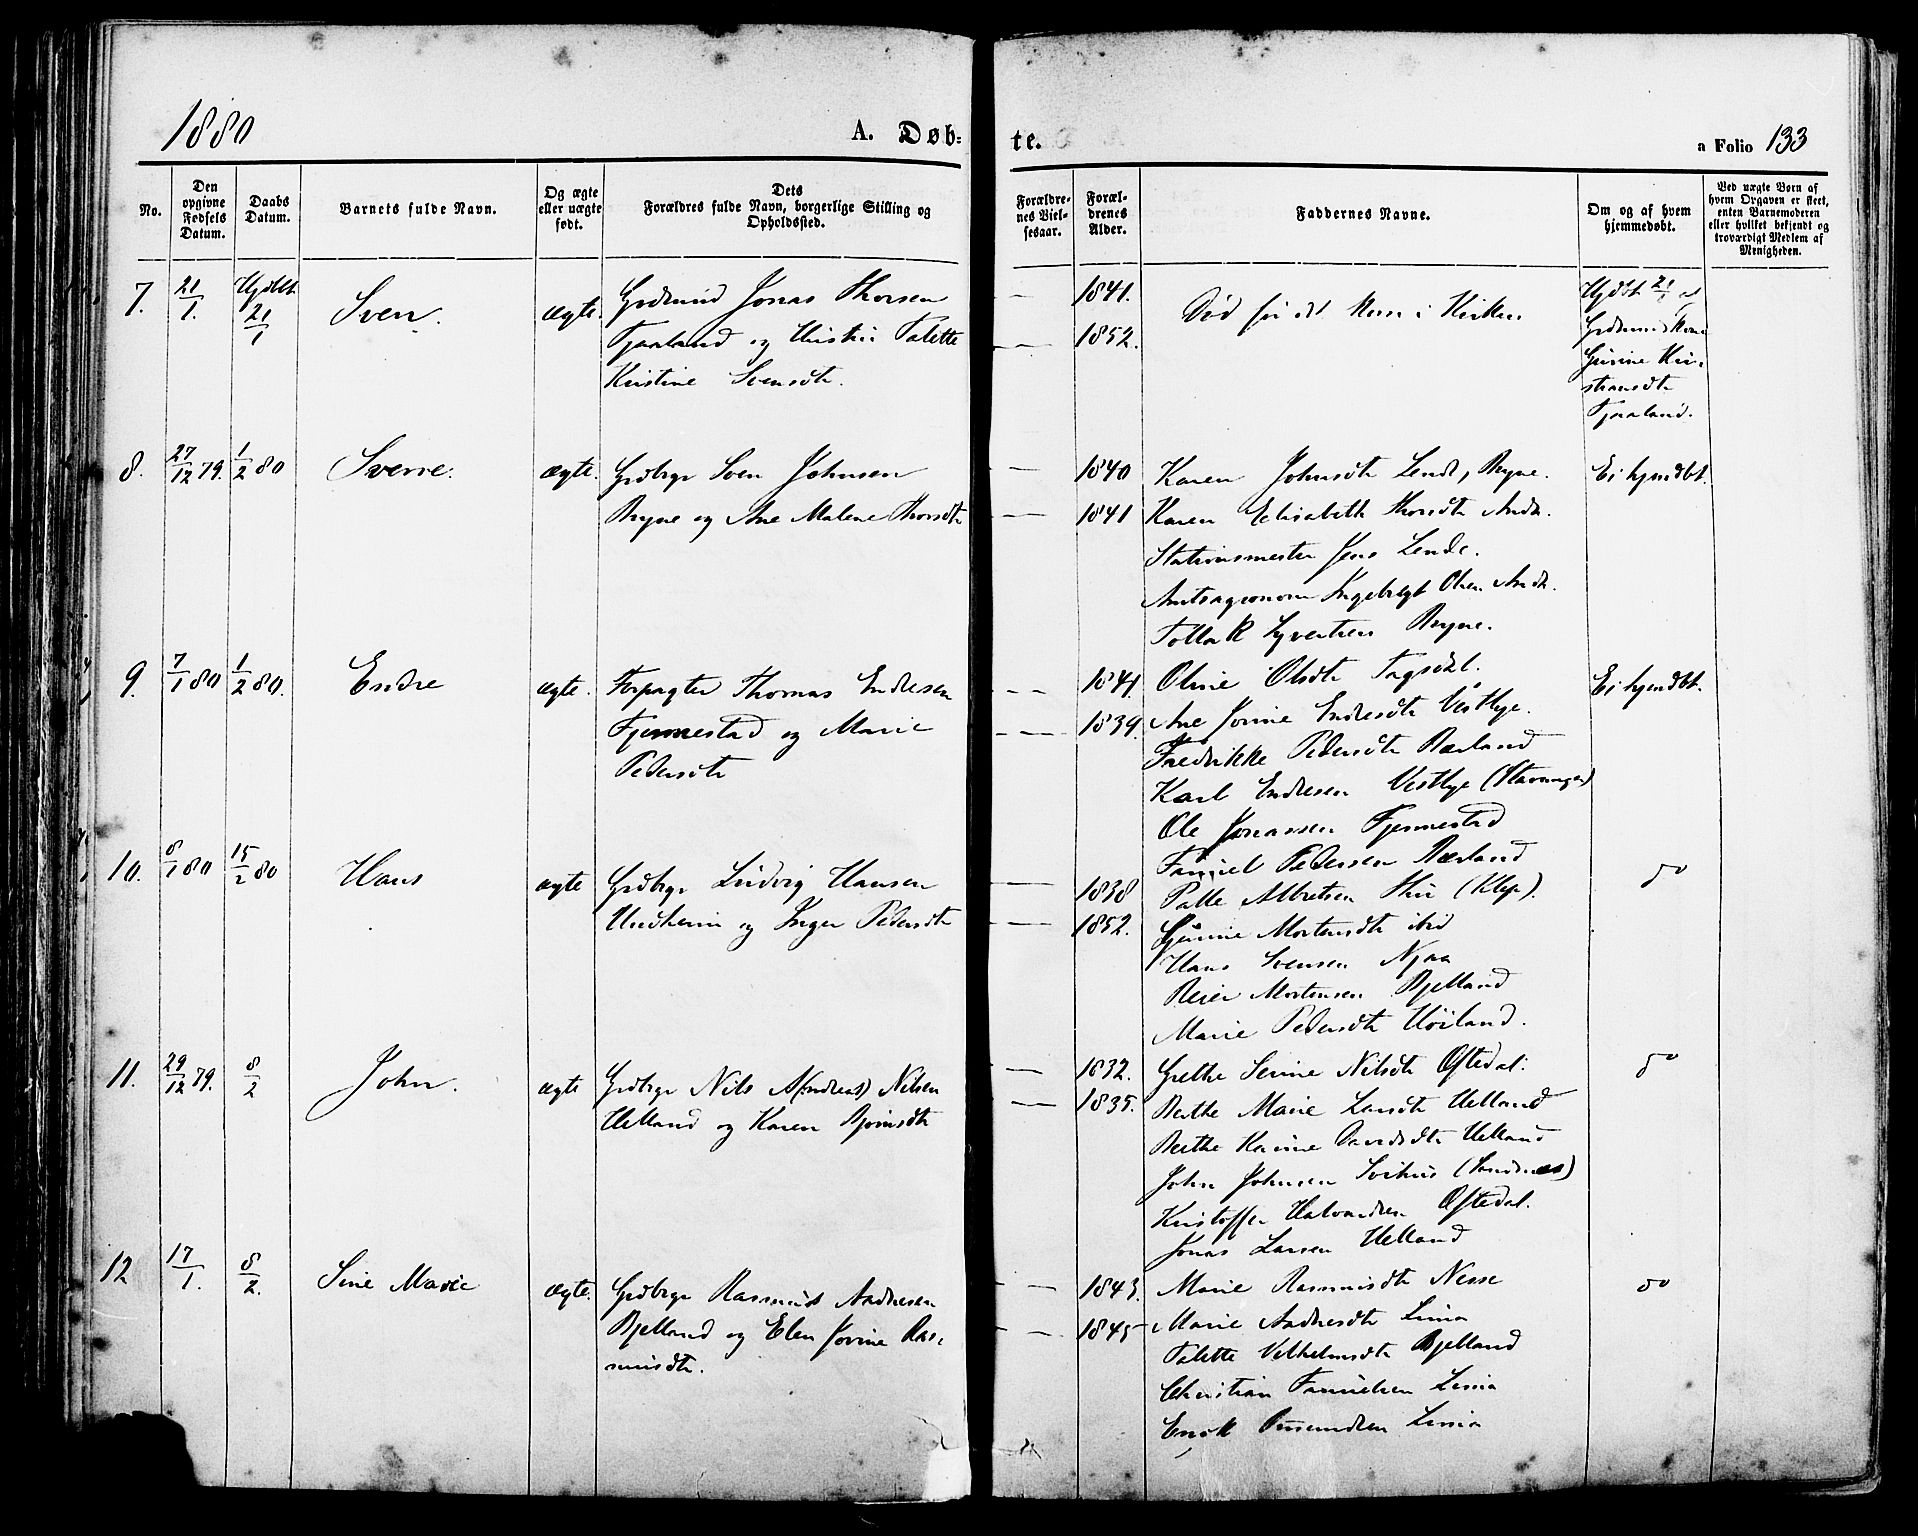 1880
A. Døb-
te.
a Folio 133
No.
Den opgivne Fødsels Datum.
Daabs Datum.
Barnets fulde Navn.
Og ægte eller uægte født.
Dets Forældres fulde Navn, borgerlige Stilling og Opholdssted.
Forældrenes Vielsesaar.
Forældrenes Alder.
Faddernes Navne.
Om og af hvem hjemmedøbt.
Ved uægte Børn af hvem Opgaven er skeet, enten Barnemoderen eller hvilket bekjendt og troværdigt Medlem af Menigheden.
7. 21/1. Hjdbt. 21/1 Sven. ægte. Grdmnd Jonas Thorsen
Tjaaland og Hustru Talette
Kristine Svensdtr.
1841.
1852.
Død før det kom i Kirken
Hjdbt 21/1 af
Grdmnd Kone
Gunine Kri-
stiansdtr
Tjaaland.
8. 27/12 79. 1/2 80 Sverre. ægte. Grdbrgr Sven Johnsen
Bryne og Ane Malene Thorsdtr
1840
1841
Karen Johnsdtr Lende, Bryne.
Karen Elisabeth Thorsdtr Anda.
Stationsmester Jens Lende.
Amtsagronom Ingebregt Olsen Anda.
Tollak Syvertsen Bryne.
Ei hjemdbt.
9. 7/1 80 1/2 80. Endre ægte. Forpagter Thomas Endresen
Fjermestad og Marie
Pedersdtr
1841.
1839.
Oline Olsdtr Fogsdal.
Ane Jorine Endresdtr Vestlye.
Fredrikke Pedersdtr Rærland
Karl Endresen Vestlye (Stavanger)
Ole Jonassen Fjermestad
Samuel Pedersen Rærland
Ei hjemdbt.
10. 8/1 80 15/2 80 Hans ægte Grdbrgr Ludvig Hansen
Undheim og Inger Pedersdtr
1838
1852.
Palle Albretsen Hus (Klep).
Gurine Mortensdtr ibid
Hans Svensen Njaa
Reier Mortensen Bjelland
Marie Pedersdtr Høiland.
do
11. 29/12 79. 8/2 John. ægte Grdbrgr Nils A(ndreas) Nilsen
Helland og Karen Bjørnsdtr
1832.
1835.
Grethe Serine Nilsdtr Oftedal.
Berthe Marie Larsdtr Helland
Berthe Karine Davidsdtr Helland
John Johnsen Svihus (Sandnæs)
Kristoffer Halvardsen Oftedal.
Jonas Larsen Helland
do
12 17/1. 8/2. Sine Marie ægte. Grdbrgr Rasmus Andresen
Bjelland og Elen Jorine Ras-
musdtr.
1843.
1845
Marie Rasmusdtr Nesse
Marie Andresdtr Lima
Talette Vilhelmsdtr Bjelland
Christian Samuelsen Lima
Enok Omundsen Lima
do